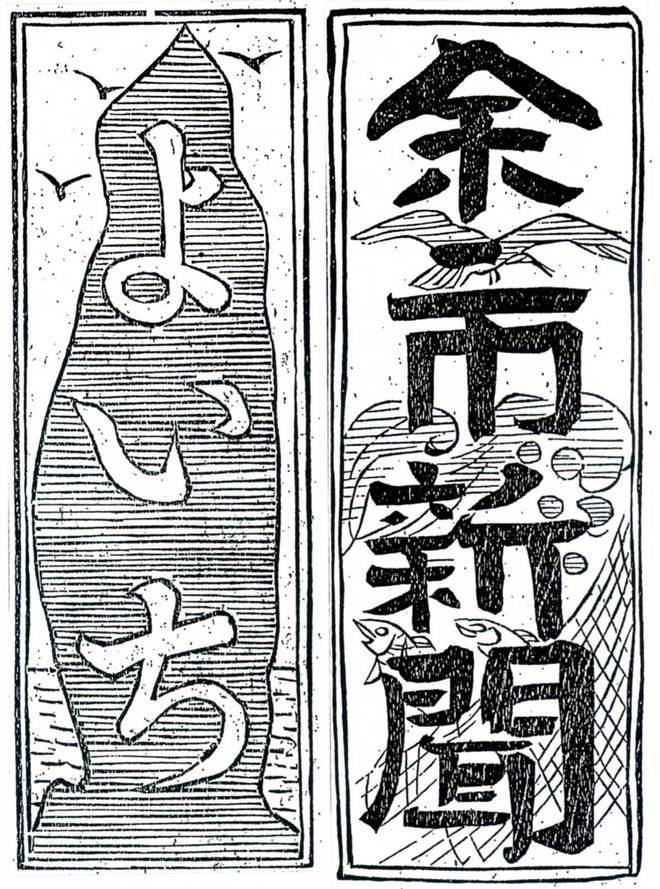 余市新聞
よいち